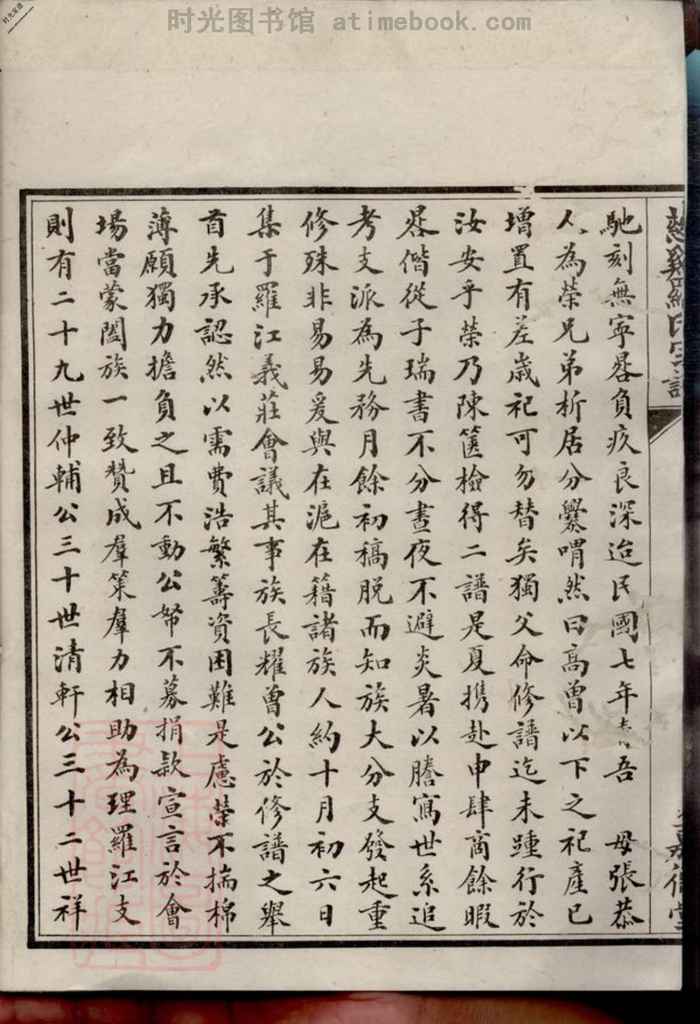 时光图书馆 atimebook.com
慈谿羅氏宗譜
馳刻無寧晷負疚良深迨民國七年春吾 母張恭
人為榮兄弟析居分爨喟然曰高曾以下之祀產已
增置有差歲祀可勿替矣獨父命修譜迄未踵行於
汝安乎榮乃陳篋檢得二譜是夏携赴申肆商餘暇
晷偕從子瑞書不分晝夜不避炎暑以謄寫世系追
考支派為先務月餘初稿脫而知族大分支發起重
修殊非易易爰與在滬在籍諸族人約十月初六日
集于羅江義莊會議其事族長耀曾公於修譜之舉
首先承認然以需費浩繁籌資困難是慮榮不揣棉
薄願獨力擔負之且不動公帑不募捐款宣言於會
場當蒙闔族一致贊成羣策羣力相助為理羅江支
則有二十九世仲輔公三十世清軒公三十二世祥